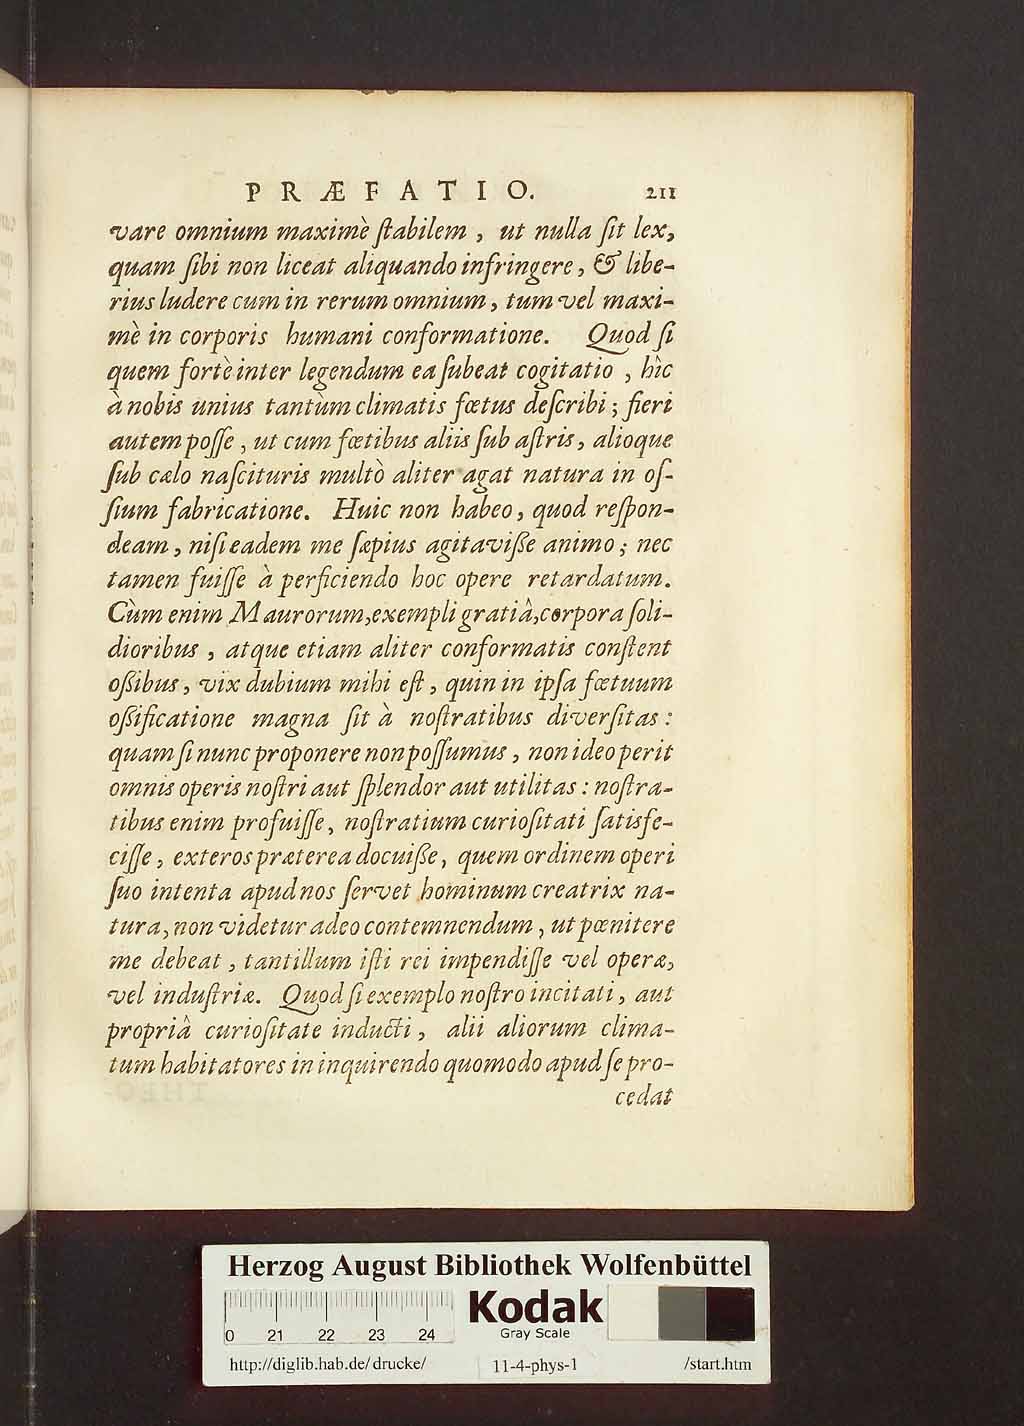 PRÆFATIO. 211
vare omnium maximè ſtabilem, ut nulla ſit lex,
quam ſibi non liceat aliquando infringere, & libe-
rius ludere cum in rerum omnium, tum vel maxi-
mè in corporis humani conformatione. Quod ſi
quem fortè inter legendum ea ſubeat cogitatio, hîc
à nobis unius tantùm climatis fœtus deſcribi; fieri
autem poſſe, ut cum fœtibus aliis ſub aſtris, alioque
ſub cælo naſcituris multò aliter agat natura in oſ-
ſium fabricatione. Huic non habeo, quod reſpon-
deam, niſi eadem me ſæpius agitaviße animo; nec
tamen fuiſſe à perficiendo hoc opere retardatum.
Cùm enim Maurorum, exempli gratiâ, corpora ſoli-
dioribus, atque etiam aliter conformatis conſtent
oßibus, vix dubium mihi eſt, quin in ipſa fœtuum
oßificatione magna ſit à noſtratibus diverſitas:
quam ſi nunc proponere non poſſumus, non ideo perit
omnis operis noſtri aut ſplendor aut utilitas: noſtra-
tibus enim profuiſſe, noſtratium curioſitati ſatisfe-
ciſſe, exteros præterea docuiße, quem ordinem operi
ſuo intenta apud nos ſervet hominum creatrix na-
tura, non videtur adeo contemnendum, ut pœnitere
me debeat, tantillum iſti rei impendiſſe vel operæ,
vel induſtriæ. Quod ſi exemplo noſtro incitati, aut
propriâ curioſitate inducti, alii aliorum clima-
tum habitatores in inquirendo quomodo apud ſe pro-
cedat
Herzog August Bibliothek Wolfenbüttel
Kodak
Gray Scale
0 21 22 23 24
http://diglib.hab.de/drucke/ 11-4-phys-1 /start.htm